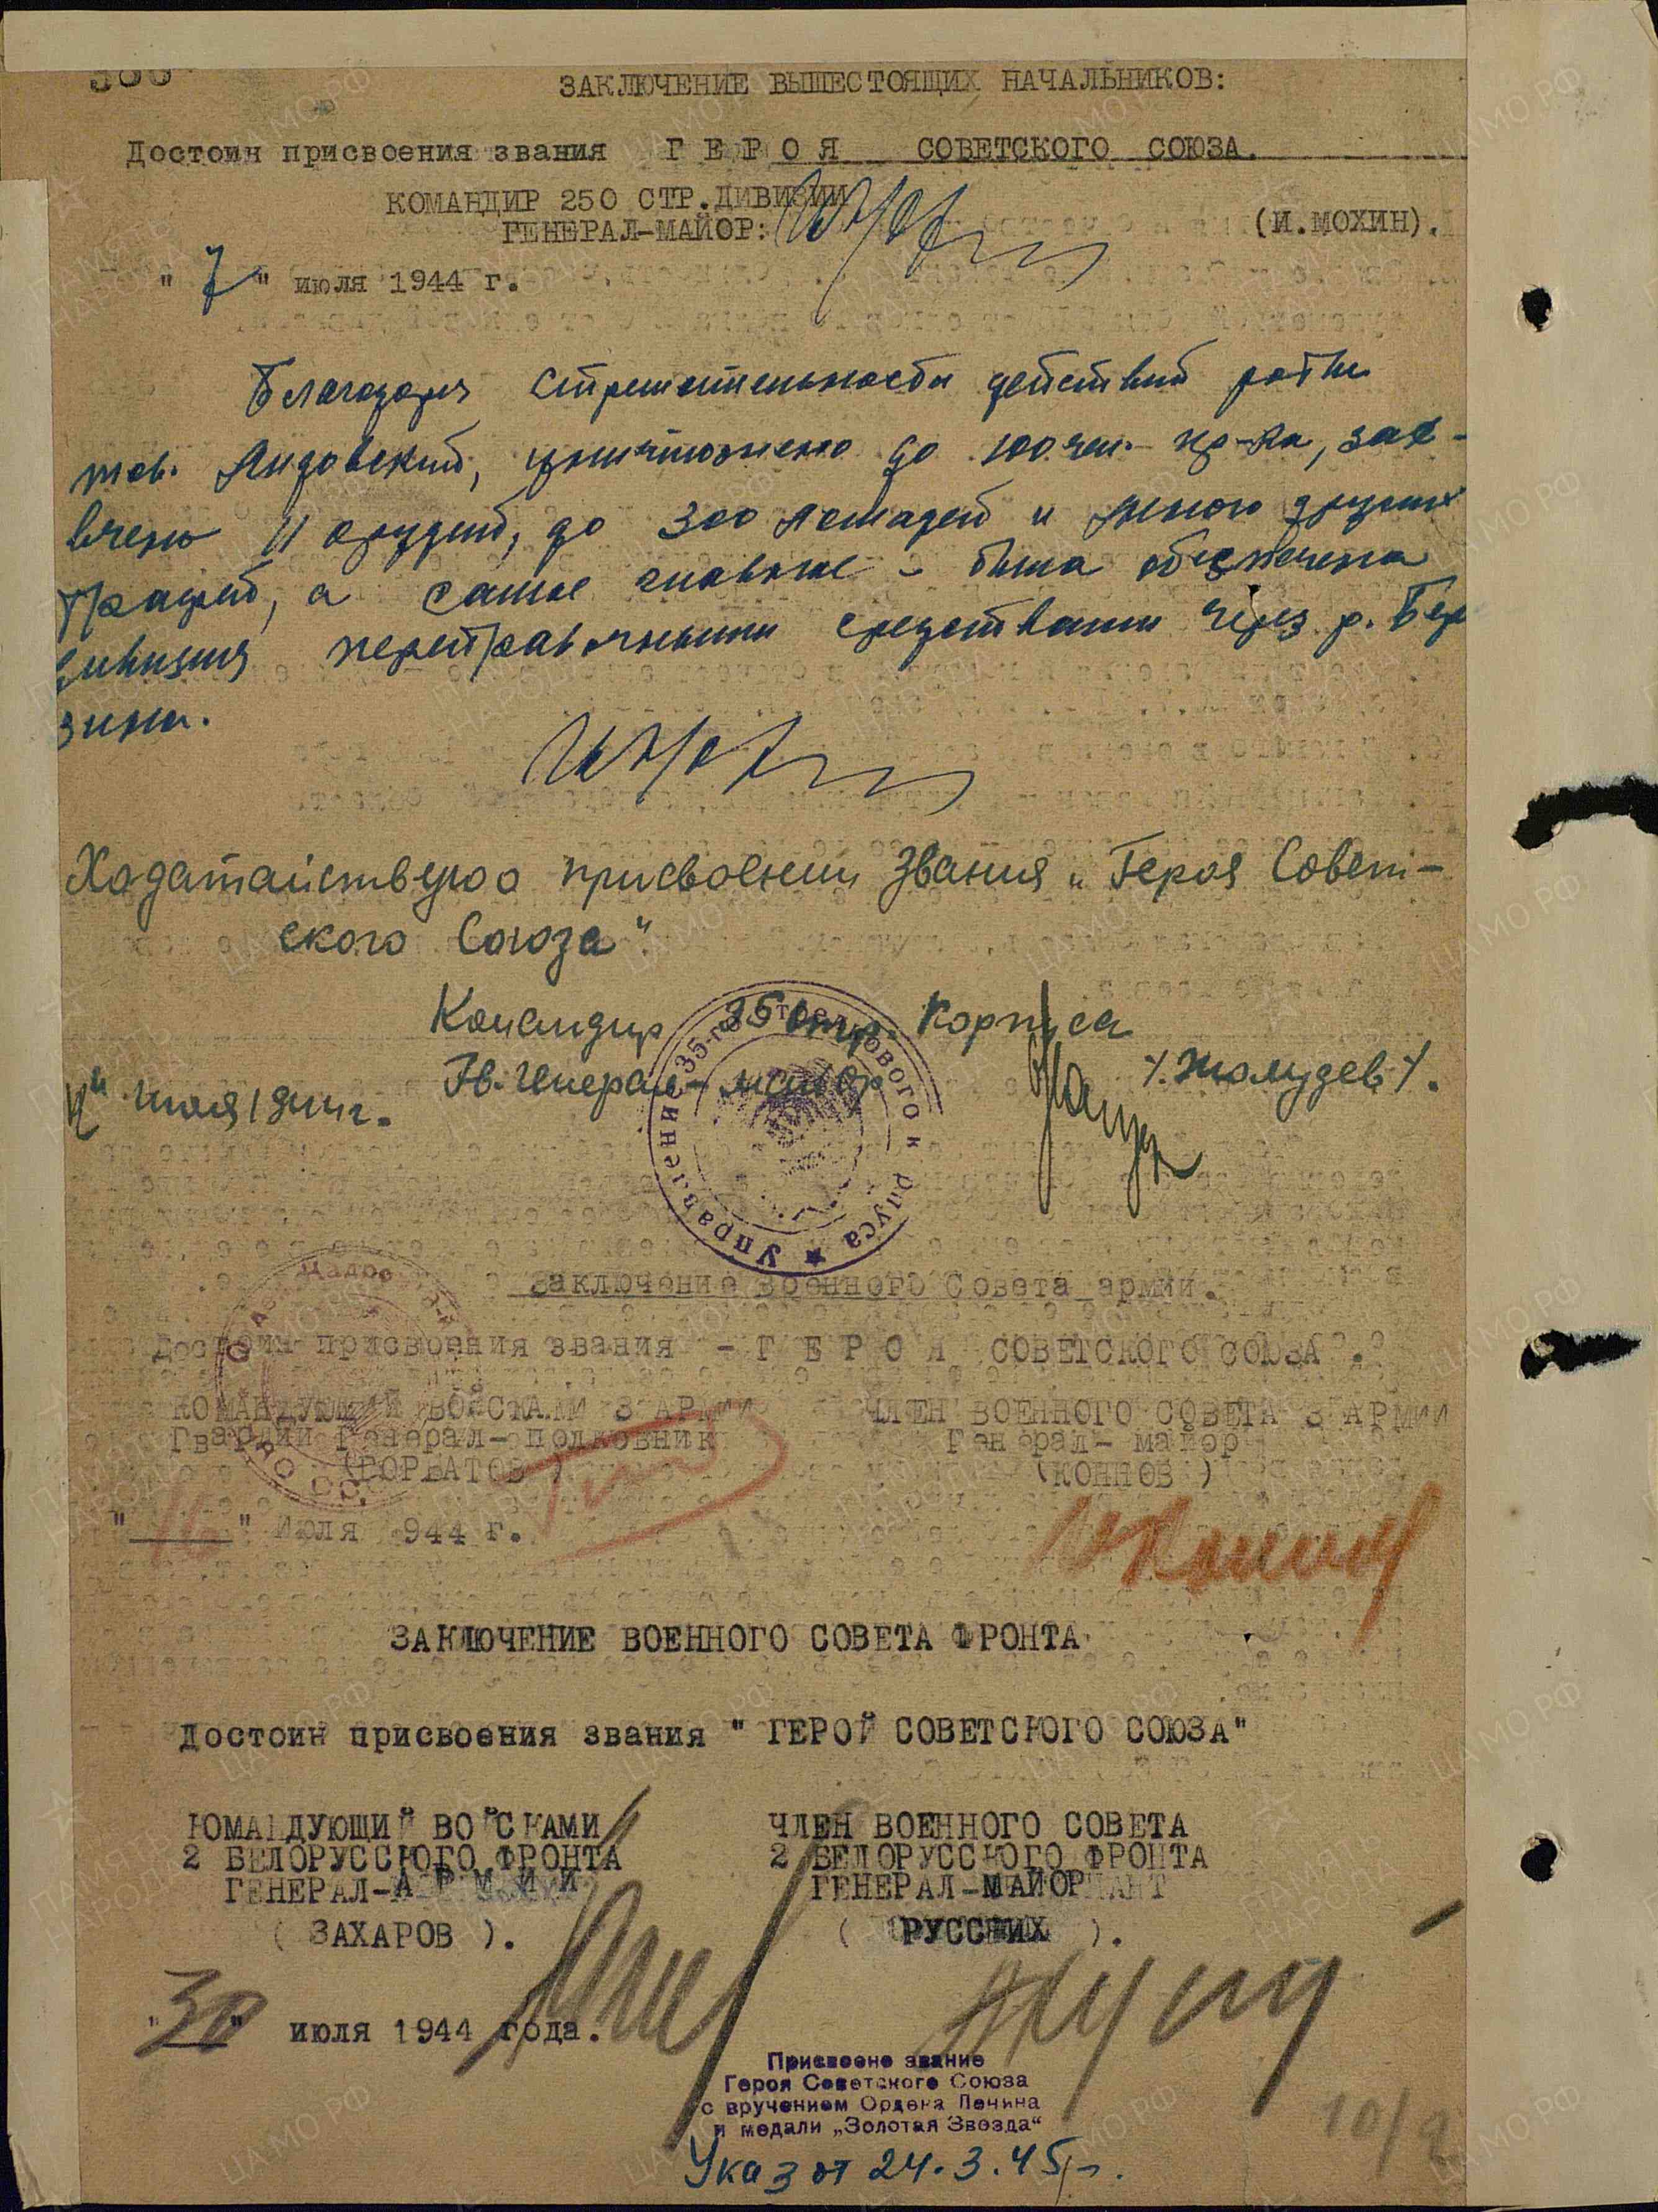 ЗАКЛЮЧЕНИЕ ВЫШЕСТОЯЩИХ НАЧАЛЬНИКОВ:
Достоин присвоения звания Г Е Р О Я СОВЕТСКОГО СОЮЗА.
КОМАНДИР 250 СТР.ДИВИЗИИ
ГЕНЕРАЛ-МАЙОР: (И.МОХИН).
" 7 " июля 1944 г.
Благодаря стремительности действий роты
тов. Яндовский, уничтожено до 100 чел. пр-ка, зах-
вачено 11 орудий, до 300 лошадей и много других
трофей, а самое главное - была обеспечена
дивизия переправочными средствами через р. Бере
зина.
Ходатайствую о присвоении звания „Героя Совет-
ского Союза".
Командир 35 стр. Корпуса
Гв. Генерал-майор /.Жолудев/.
июля 1944 г.
Управление 35-го стрелкового корпуса
Заключение Военного Совета армии.
Достоин присвоения звания - Г Е Р О Я СОВЕТСКОГО СОЮЗА.
КОМАНДУЮЩИЙ ВОЙСКАМИ 3 АРМИИ ЧЛЕН ВОЕННОГО СОВЕТА 3 АРМИИ
Гвардии Генерал-полковник Генерал-майор
(ГОРБАТОВ) (КОННОВ)
"16" июля 1944 г.
ЗАКЛЮЧЕНИЕ ВОЕННОГО СОВЕТА ФРОНТА
Достоин присвоения звания " ГЕРОЙ СОВЕТСКОГО СОЮЗА"
КОМАНДУЮЩИЙ ВОЙСКАМИ ЧЛЕН ВОЕННОГО СОВЕТА
2 БЕЛОРУССКОГО ФРОНТА 2 БЕЛОРУССКОГО ФРОНТА
ГЕНЕРАЛ-А Р М И И ГЕНЕРАЛ-МАЙОР
( ЗАХАРОВ ). ( РУССКИХ ).
"30" июля 1944 года.
Присвоено звание
Героя Советского Союза
с вручением Ордена Ленина
и медали „Золотая Звезда"
Указ от 24.3.45 г.